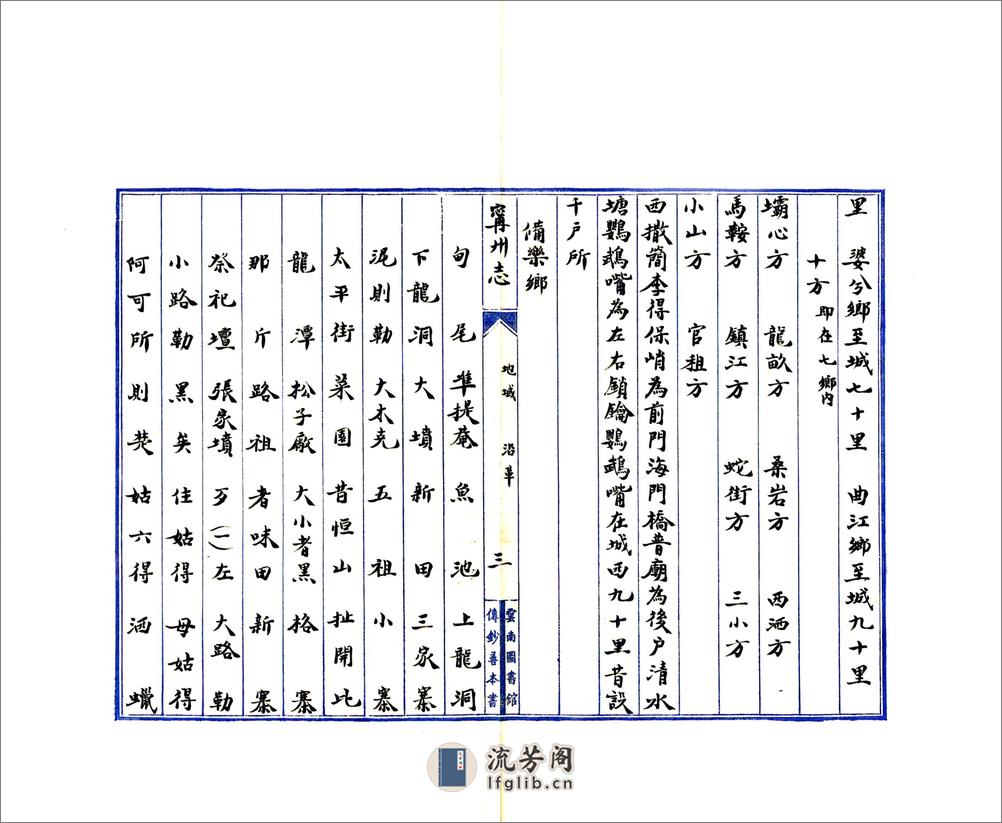 里　婆兮鄉至城七十里　曲江鄉至城九十里
十方 即在七鄉內
壩心方　龍畝方　桑岩方　西洒方
馬鞍方　鎮江方　蛇街方　三小方
小山方　官租方
西撒簡李得保峭為前門海門橋普廟為後户清水
塘鸚鵡嘴為左右鎖鑰鸚鵡嘴在城西九十里昔設
千户所
備樂鄉
甯州志　地域　沿革　三
雲南圖書館
傳鈔善本書
甸尾　準提菴　魚池　上龍洞
下龍洞　大墳　新田　三家寨
泥則勒　大木克　五祖　小寨
太平街　菜園　昔恒山　扯開比
龍潭　松子廠　大小者黑　格寨
那斤路　祖者味　田新寨
祭祀壇　張家墳　歹(一)左　大路勒
小路勒　黑矣　住姑得　母姑得
阿可所　則焚　姑六得　洒蠟
流芳阁
lfglib.cn